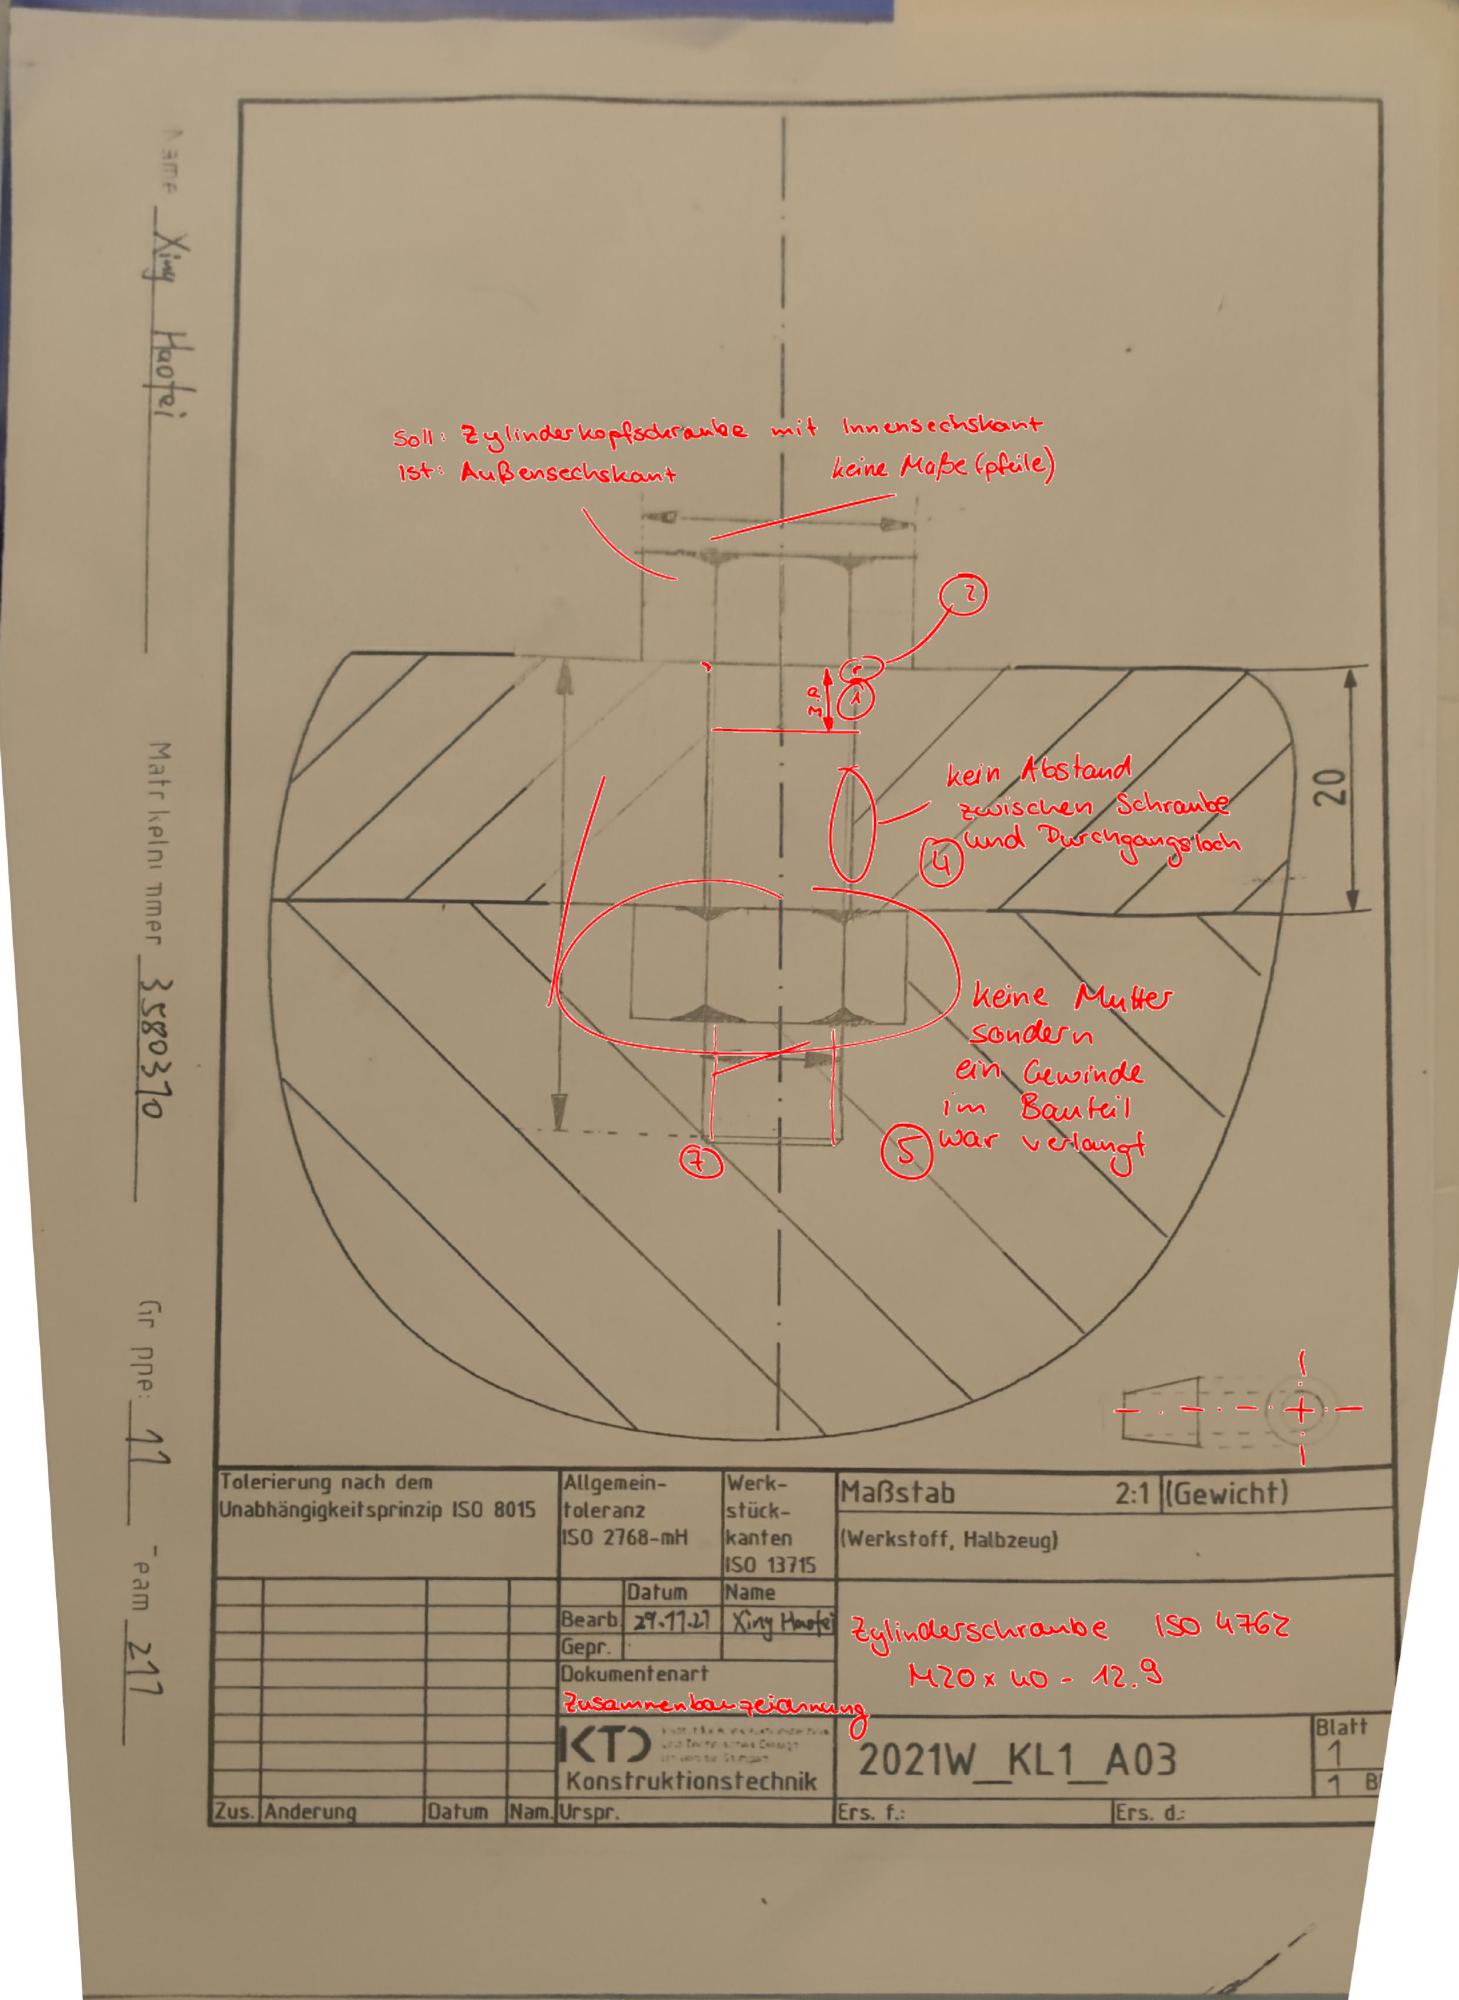 Name Xing Haofei
Matrikelnummer 3580370
Gruppe: 11
Team 217
Soll: Zylinderkopfschraube mit Innensechskant
Ist: Außensechskant
keine Maße(pfeile)
2
1
4
kein Abstand
zwischen Schraube
und Durchgangsloch
20
keine Mutter
sondern
ein Gewinde
im Bauteil
war verlangt
5
7
Tolerierung nach dem
Unabhängigkeitsprinzip ISO 8015
Allgemein-
toleranz
ISO 2768-mH
Werk-
stück-
kanten
ISO 13715
Maßstab 2:1 (Gewicht)
(Werkstoff, Halbzeug)
Datum Name
Bearb. 29.11.21 Xing Haofei
Gepr.
Dokumentenart
Zusammenbauzeichnung
Zylinderschraube ISO 4762
M20 x 40 - 12.9
KTD
Konstruktionstechnik
2021W_KL1_A03
Blatt
1
1 B
Zus. Änderung Datum Nam. Urspr. Ers. f.: Ers. d.: